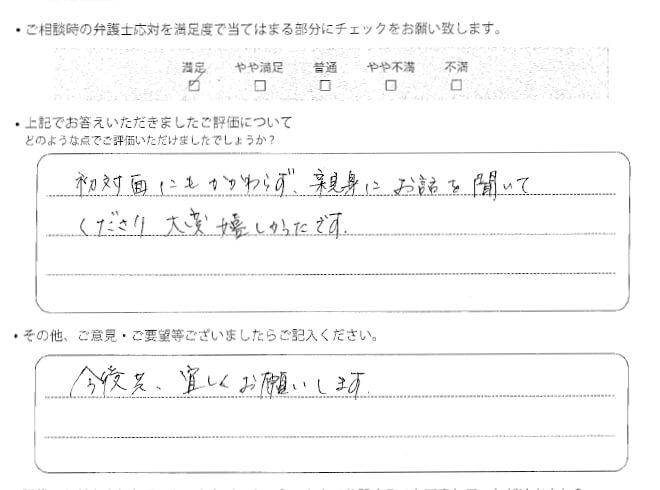 ・ご相談時の弁護士応対を満足度で当てはまる部分にチェックをお願い致します。
満足 やや満足 普通 やや不満 不満
☑ □ □ □ □
・上記でお答えいただきましたご評価について
どのような点でご評価いただけましたでしょうか？
初対面にもかかわらず、親身にお話を聞いて
くださり大変嬉しかったです。
・その他、ご意見・ご要望等ございましたらご記入ください。
今後共、宜しくお願いします。